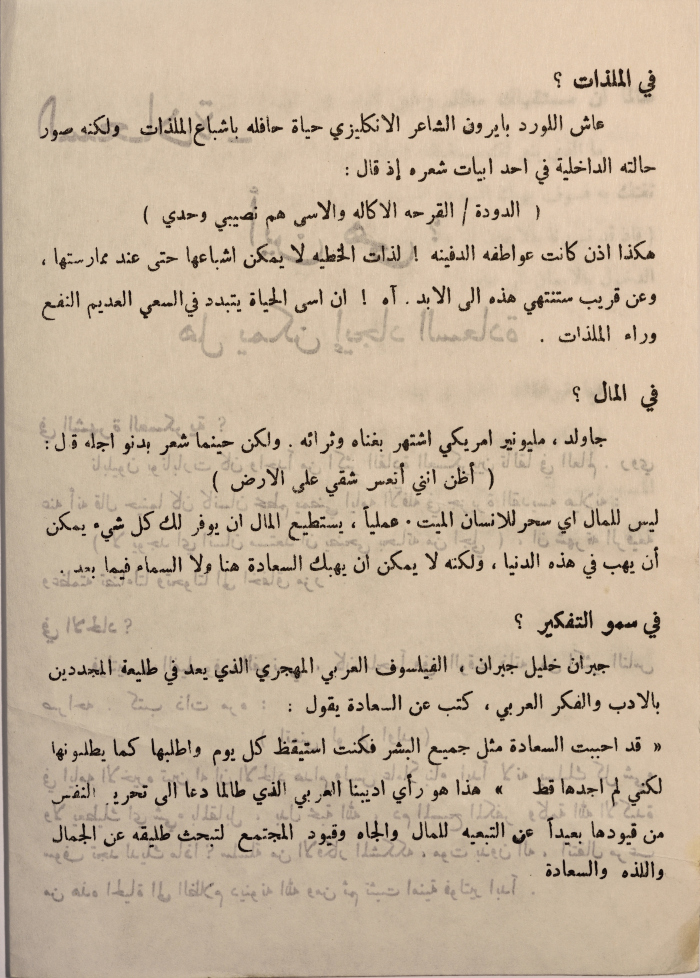 في الملذات ؟
عاش اللورد بايرون الشاعر الانكليزي حياة حافله باشباع الملذات ولكنه صور
حالته الداخلية في احد ابيات شعره إذ قال :
( الدودة / القرحه الاكاله والاسى هم نصيبي وحدي )
هكذا اذن كانت عواطفه الدفينه ! لذات الخطيه لا يمكن اشباعها حتى عند ممارستها ،
وعن قريب ستنتهي هذه الى الابد . آه ! ان اسى الحياة يتبدد في السعي العديم النفع
وراء الملذات .
في المال ؟
جاولد ، مليونير امريكي اشتهر بغناه وثرائه . ولكن حينما شعر بدنو اجله قال :
( أظن انني أتعس شقي على الارض )
ليس للمال اي سحر للانسان الميت . عملياً ، يستطيع المال ان يوفر لك كل شيء يمكن
أن يهب في هذه الدنيا ، ولكنه لا يمكن ان يهبك السعادة هنا ولا السماء فيما بعد .
في سمو التفكير ؟
جبران خليل جبران ، الفيلسوف العربي المهجري الذي يعد في طليعة المجددين
بالادب والفكر العربي ، كتب عن السعادة يقول :
« قد احببت السعادة مثل جميع البشر فكنت استيقظ كل يوم واطلبها كما يطلبونها
لكني لم اجدها قط » هذا هو رأي اديبنا العربي الذي طالما دعا الى تحرير النفس
من قيودها بعيداً عن التبعيه للمال والجاه وقيود المجتمع لتبحث طليقه عن الجمال
واللذه والسعادة .